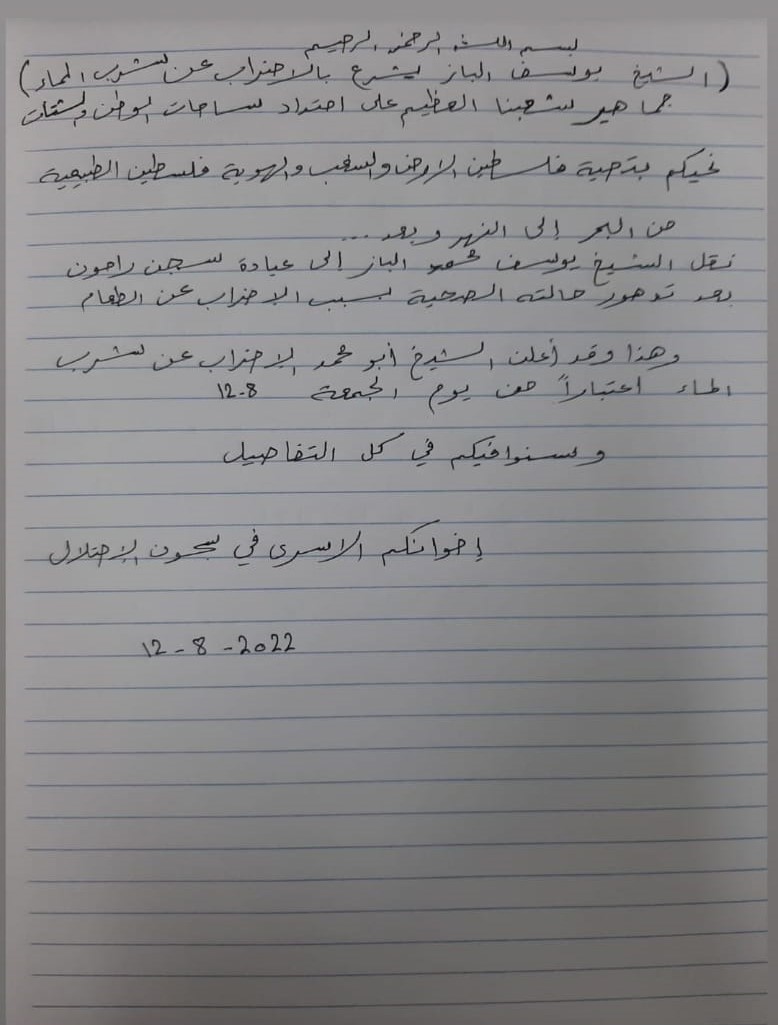 بسم الله الرحمن الرحيم
(الشيخ يوسف الباز يشرع بالاضراب عن شرب الماء)
جماهير شعبنا العظيم على امتداد ساحات الوطن والشتات
نحيكم بتحية فلسطين الارض والشعب والهوية فلسطين الطبيعية
من البحر إلى النهر وبعد...
نقل الشيخ يوسف الباز إلى عيادة سجن رامون
بعد تدهور حالته الصحية بسبب الاضراب عن الطعام
وهذا وقد أعلن الشيخ أبو محمد الإضراب عن شرب
الماء اعتباراً من يوم الجمعة 12-8
وسنوافيكم في كل التفاصيل
إخوانكم الاسرى في سجون الإحتلال
12-8-2022